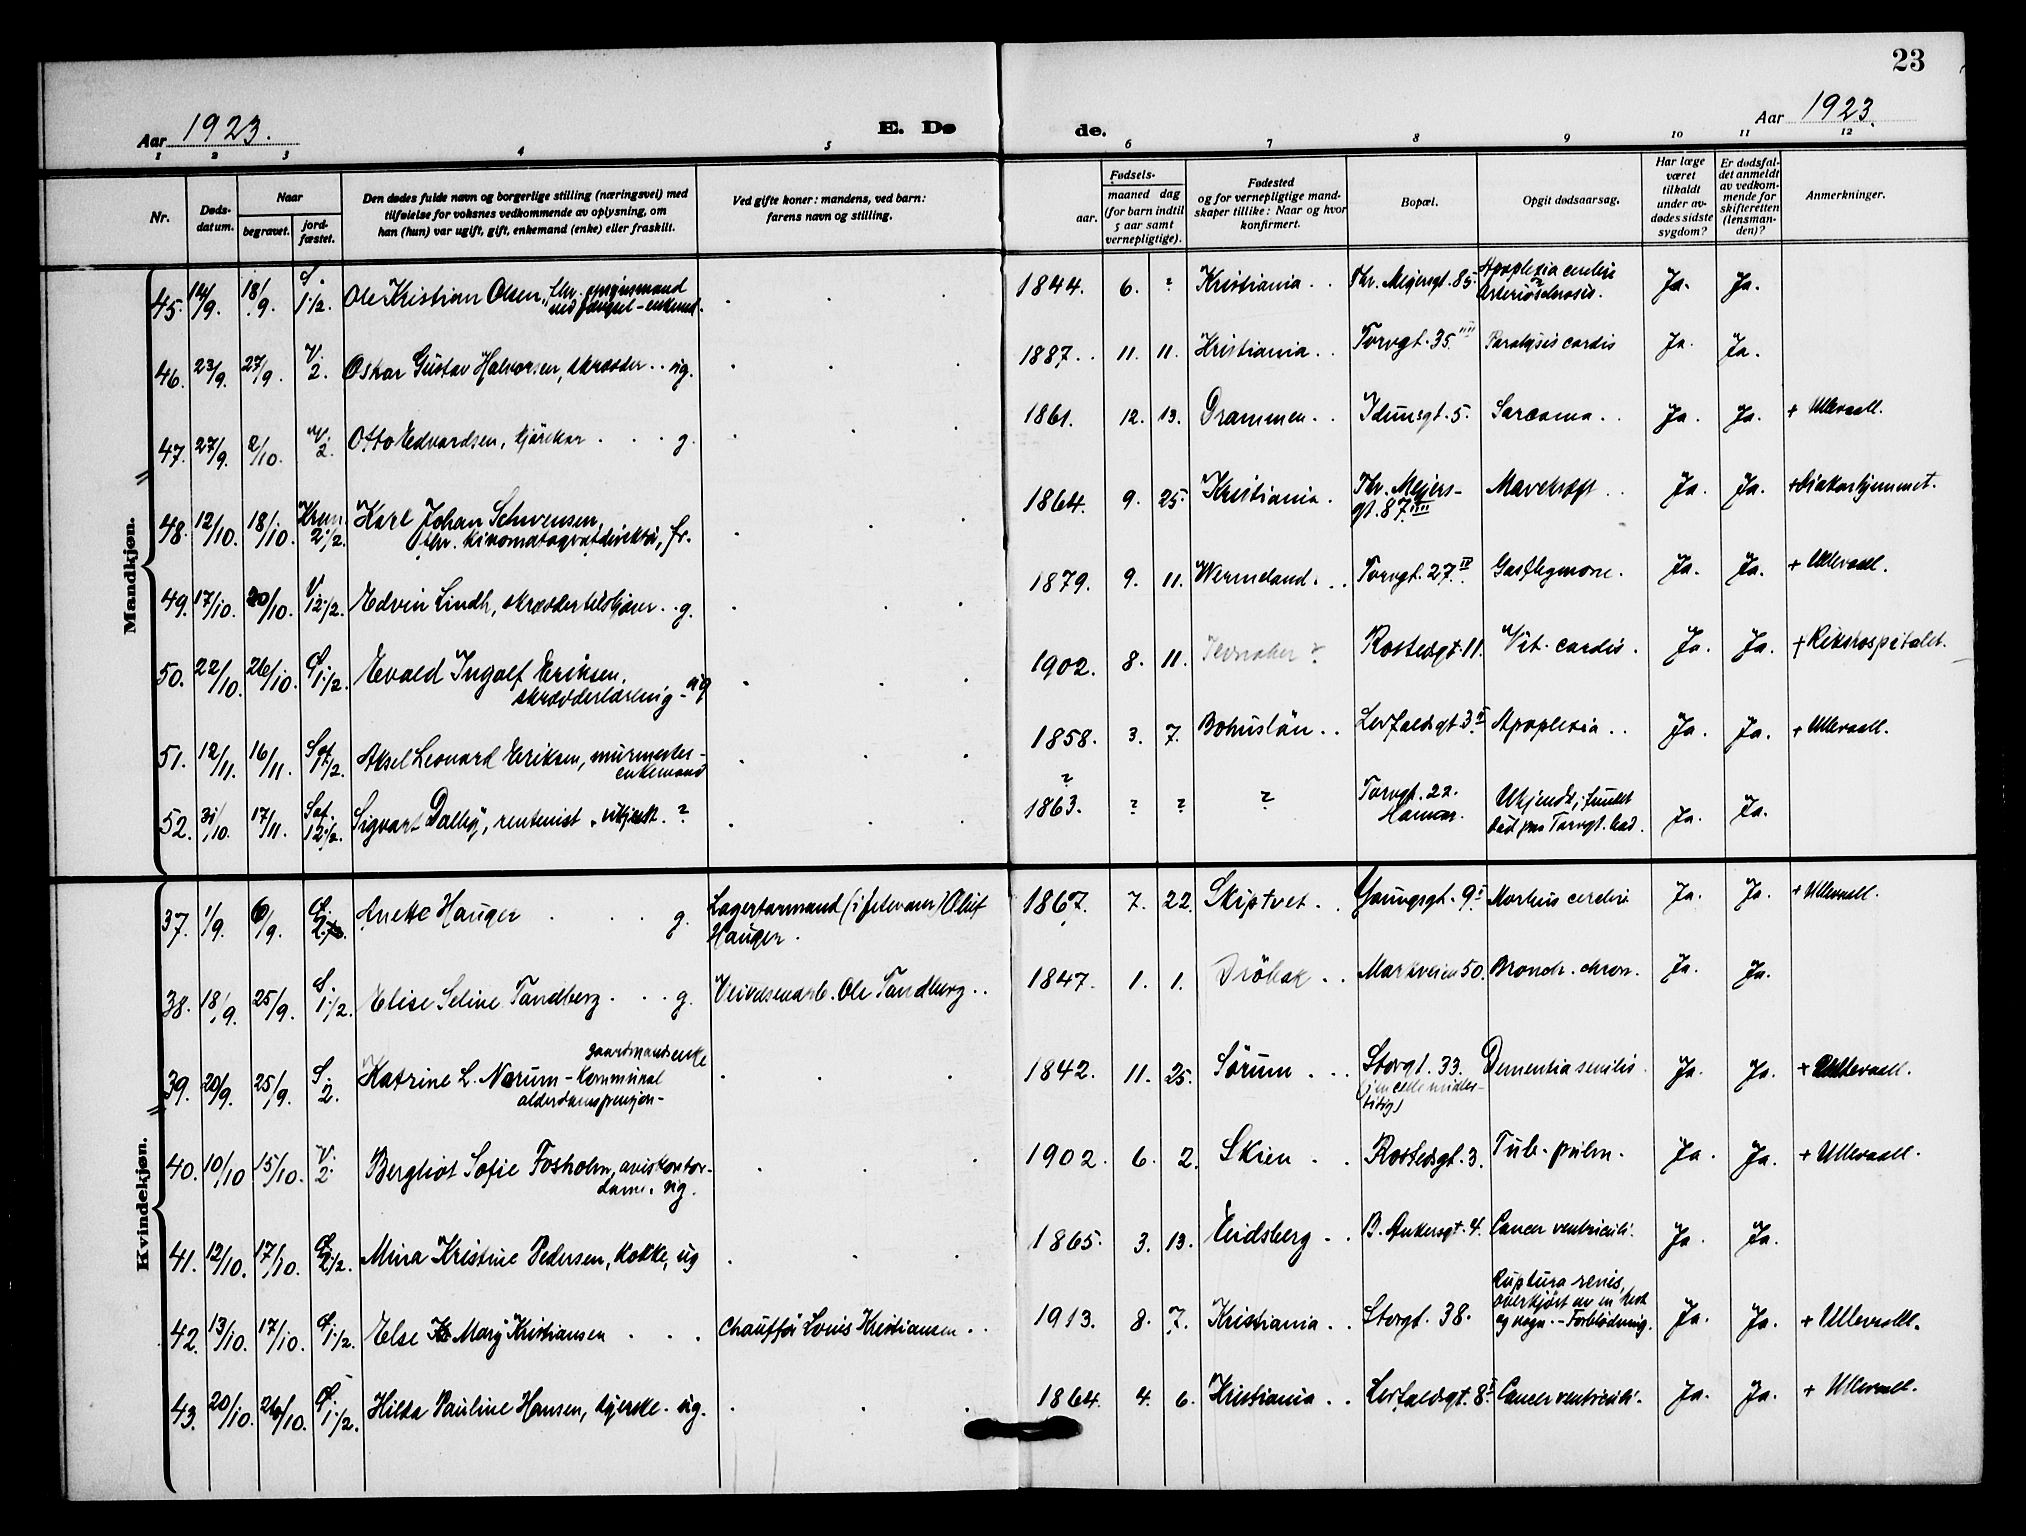 23
Aar 1923.
E. Dø
de.
Aar 1923.
1 2 3 4 5 6 7 8 9 10 11 12
Nr.
Døds-
datum.
Naar
begravet.
jord-
fæstet.
Den dødes fulde navn og borgerlige stilling (næringsvei) med
tilføielse for voksnes vedkommende av oplysning, om
han (hun) var ugift, gift, enkemand (enke) eller fraskilt.
Ved gifte koner: mandens, ved barn:
farens navn og stilling.
Fødsels-
aar.
maaned dag
(for barn indtil
5 aar samt
vernepligtige).
Fødested
og for vernepligtige mand-
skaper tillike: Naar og hvor
konfirmert.
Bopæl.
Opgit dødsaarsag.
Har læge
været
tilkaldt
under av-
dødes sidste
sygdom?
Er dødsfal-
det anmeldt
av vedkom-
mende for
skifteretten
(lensman-
den)?
Anmerkninger.
Mandkjøn.
45. 14/9. 18/9. S. 1 1/2. Ole Kristian Olsen, fhv. opsynsmand
ved fængsel - enkemd. 1844. 6. ? Kristiania .. Thv. Meyersgt. 85. Apoplexia cerebri
Arteriosclerosis. Ja. Ja.
46. 23/9. 27/9. V. 2. Oskar Gustav Halvorsen, skrædder .. ug. 1887. 11. 11. Kristiania .. Torvgt. 35 Paralysis cordis Ja. Ja.
47. 27/9. 2/10. V. 2. Otto Edvardsen, kjørekar ... g. 1861. 12. 13. Drammen .. Idunsgt. 5. Sarcoma .. Ja. Ja. + Ullevaall.
48. 12/10. 18/10. Krem. 2 1/2. Karl Johan Schwensen,
fhv. kinomatografdirektør, fr. 1864. 9. 25. Kristiania. Thv. Meyers-
gt. 87 Mavekræft .. Ja. Ja. + Diakonhjemmet.
49. 17/10. 20/10. V. 12 1/2. Edvin Lindh, skræddertilskjærer .. g. 1879. 9. 11. Wermeland. .. Torvgt. 27 IV Ja. Ja. + Ullevaall.
50. 22/10. 26/10. S. 1 1/2. Evald Ingolf Eriksen,
skrædderlærling - ug 1902. 8. 11. Jevnaker ? Rostedsgt. 11. Vit. cordis. Ja. Ja. + Rikshospitalet.
51. 12/11. 16/11. Sgt. 1 1/2. Aksel Leonard Eriksen, murmester -
enkemand 1858. 3. 7. Bohuslän .. Lerfaldsgt. 3 Apoplexia .. Ja. Ja. + Ullevaall.
52. 31/10. 17/11. Sgt. 12 1/2. Sigvart Dalby, rentenist. ukjendt. ? ? 1863. ? ? ? Torvgt. 22.
Hamar. Ukjendt; fundet
død paa Torvgt. bad. Ja. Ja.
Kvindekjøn.
37. 1/9. 6/9. S. Anette Hauger .... g. Lagerformand Oluf
Hauger. 1867. 7. 22. Skiptvet .. Youngsgt. 9 Morbus cerebri Ja. Ja. + Ullevaall.
38. 18/9. 25/9. S. 1 1/2. Elise Seline Tandberg .... g. Veivæsenarb. Ole Tandberg .. 1847. 1. 1. Drøbak .. Markveien 50. Bronch. chron. Ja. Ja.
39. 20/9. 25/9. S. 2. Katrine L. Norum - gaardmandsenke
kommunal
alderdomspensjon - 1842. 11. 25. Sørum ... Storgt. 33. Dementia senilis. Ja. Ja. + Ullevaall.
40. 10/10 15/10. V. 2. Bergliot Sofie Fosholm, aviskontor-
dame. ug. 1902. 6. 2. Skien .. Rostedsgt. 3. Tub. pulm. Ja. Ja. + Ullevaall.
41. 12/10. 17/10. S. 2 1/2. Mina Kristine Pedersen, kokke, ug 1865. 3. 13. Eidsberg .. B. Ankersgt. 4. Cancer ventriculi. Ja. Ja.
42. 13/10. 17/10. S. 1 1/2. Else Mary Kristiansen ... Chauffør Louis Kristiansen .. 1913. 8. 7. Kristiania .. Storgt. 38. Ruptura renis,
overkjørt av en hest
og vogn. - Forblødning. Ja. Ja. + Ullevaall.
43. 20/10. 26/10. S. 1 1/2. Hilda Pauline Hansen, syerske. ug. 1864. 4. 6. Kristiania .. Lerfaldsgt. 8 Cancer ventriculi. Ja. Ja. + Ullevaall.